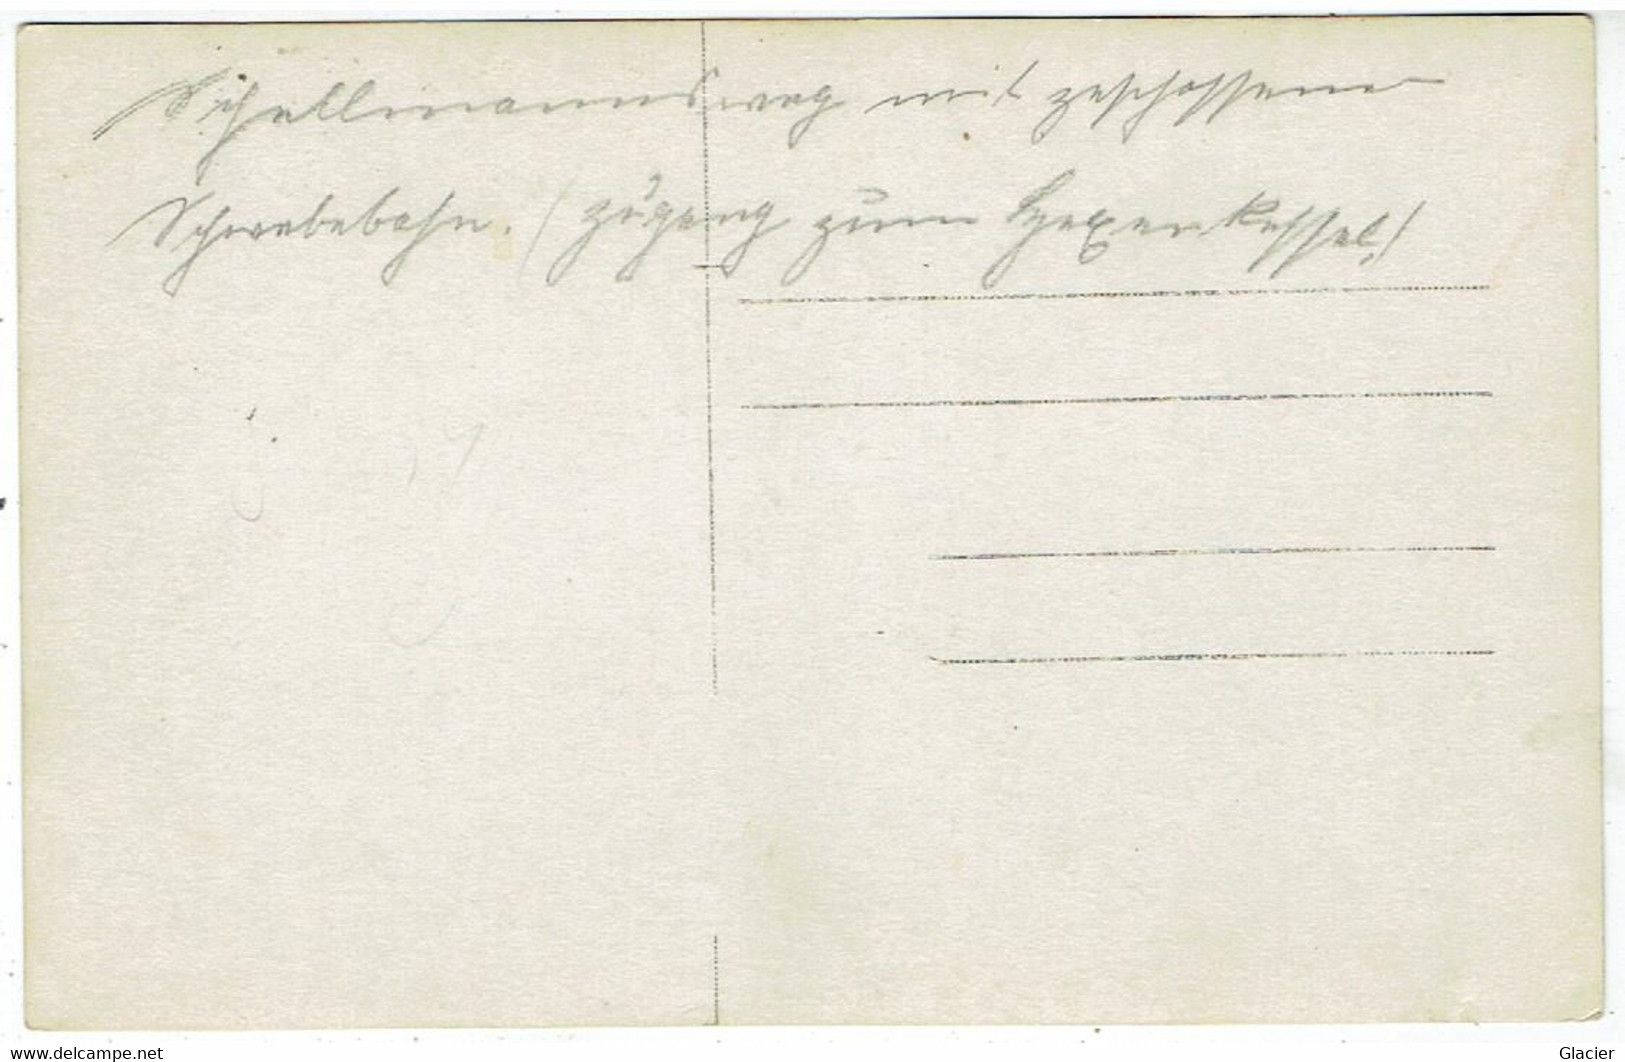 Schallmannsweg mit zeschossene
Schwebebahn. (Zugang zum Hexenkessel!)
www.delcampe.net
Glacier